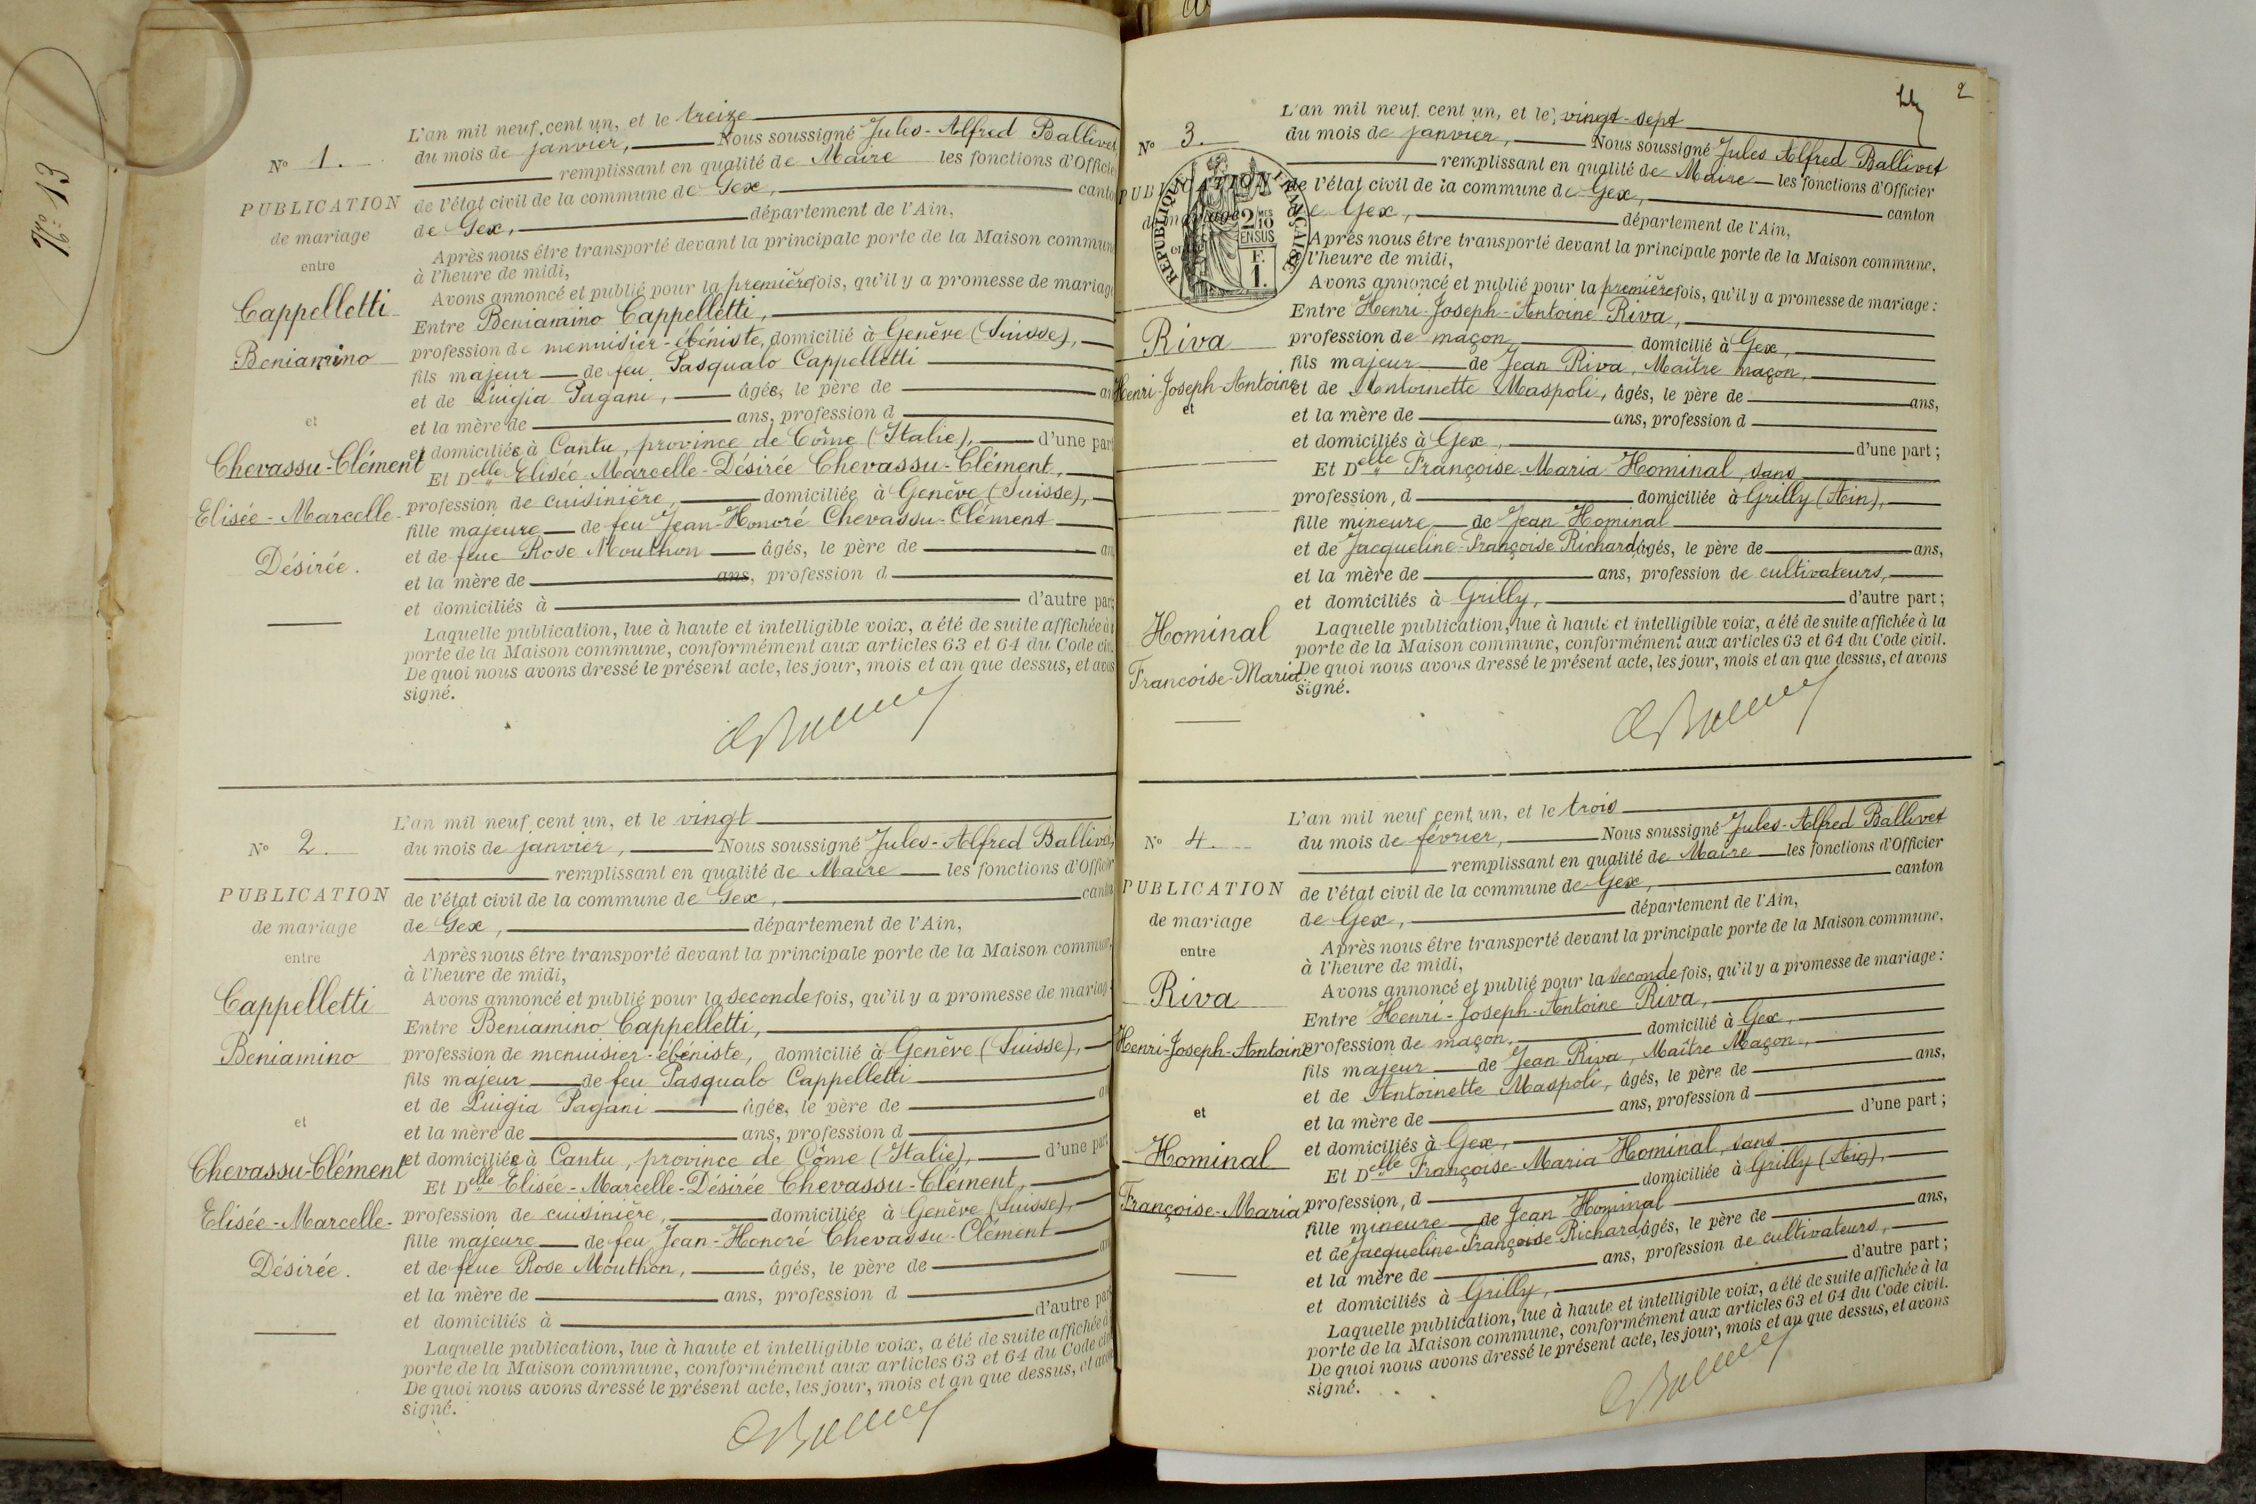 N° 13
N° 1.
PUBLICATION
de mariage
entre
Cappelletti
Beniamino
et
Chevassu-Clément
Elisée-Marcelle-
Désirée.
L'an mil neuf cent un, et le treize
du mois de janvier, Nous soussigné Jules-Alfred Ballivet
remplissant en qualité de Maire les fonctions d'Officie
de l'état civil de la commune de Gex, canto
de Gex, département de l'Ain,
Après nous être transporté devant la principale porte de la Maison commun
à l'heure de midi,
Avons annoncé et publié pour la première fois, qu'il y a promesse de mariage
Entre Beniamino Cappelletti,
profession de menuisier-ébéniste, domicilié à Genève (Suisse),
fils majeur de feu Pasqualo Cappelletti
et de Luigia Pagani, âgés, le père de an
et la mère de ans, profession d
et domiciliés à Cantu, province de Côme (Italie), d'une part
Et Delle Elisée-Marcelle-Désirée Chevassu-Clément,
profession de cuisinière, domiciliée à Genève (Suisse),
fille majeure de feu Jean-Honoré Chevassu-Clément
et de feue Rose Mouthon âgés, le père de an
et la mère de ans, profession d
et domiciliés à d'autre part;
Laquelle publication, lue à haute et intelligible voix, a été de suite affichée à
porte de la Maison commune, conformément aux articles 63 et 64 du Code civ
De quoi nous avons dressé le présent acte, les jour, mois et an que dessus, et avons
signé.
N° 2.
PUBLICATION
de mariage
entre
Cappelletti
Beniamino
et
Chevassu-Clément
Elisée-Marcelle-
Désirée.
L'an mil neuf cent un, et le vingt
du mois de janvier, Nous soussigné Jules-Alfred Ballivet,
remplissant en qualité de Maire les fonctions d'Officier
de l'état civil de la commune de Gex, canton
de Gex, département de l'Ain,
Après nous être transporté devant la principale porte de la Maison commune,
à l'heure de midi,
Avons annoncé et publié pour la seconde fois, qu'il y a promesse de mariage
Entre Beniamino Cappelletti,
profession de menuisier-ébéniste, domicilié à Genève (Suisse),
fils majeur de feu Pasqualo Cappelletti
et de Luigia Pagani âgés, le père de an
et la mère de ans, profession d
et domiciliés à Cantu, province de Côme (Italie), d'une part
Et Delle Elisée-Marcelle-Désirée Chevassu-Clément,
profession de cuisinière, domiciliée à Genève (Suisse),
fille majeure de feu Jean-Honoré Chevassu-Clément
et de feue Rose Mouthon, âgés, le père de an
et la mère de ans, profession d
et domiciliés à d'autre part
Laquelle publication, lue à haute et intelligible voix, a été de suite affichée à
porte de la Maison commune, conformément aux articles 63 et 64 du Code civil
De quoi nous avons dressé le présent acte, les jour, mois et an que dessus, et avons
signé.
2
N° 3.
PUBLICATION
de mariage
entre
RÉPUBLIQUE FRANÇAISE
2/10 MES
EN SUS
F.
1.
Riva
Henri-Joseph-Antoine
et
Hominal
Francoise-Maria.
L'an mil neuf cent un, et le vingt-sept
du mois de janvier, Nous soussigné Jules Alfred Ballivet
remplissant en qualité de Maire les fonctions d'Officier
de l'état civil de la commune de Gex, canton
de Gex, département de l'Ain,
Après nous être transporté devant la principale porte de la Maison commune,
l'heure de midi,
Avons annoncé et publié pour la première fois, qu'il y a promesse de mariage:
Entre Henri-Joseph-Antoine Riva,
profession de maçon, domicilié à Gex,
fils majeur de Jean Riva, Maître maçon,
et de Antoinette Maspoli, âgés, le père de ans,
et la mère de ans, profession d
et domiciliés à Gex, d'une part;
Et Delle Françoise-Maria Hominal, sans
profession, d domiciliée à Grilly (Ain),
fille mineure de Jean Hominal
et de Jacqueline-Françoise Richard, âgés, le père de ans,
et la mère de ans, profession de cultivateurs,
et domiciliés à Grilly, d'autre part;
Laquelle publication, lue à haute et intelligible voix, a été de suite affichée à la
porte de la Maison commune, conformément aux articles 63 et 64 du Code civil.
De quoi nous avons dressé le présent acte, les jour, mois et an que dessus, et avons
signé.
N° 4.
PUBLICATION
de mariage
entre
Riva
Henri-Joseph-Antoine
et
Hominal
Françoise-Maria
L'an mil neuf cent un, et le trois
du mois de février, Nous soussigné Jules-Alfred Ballivet
remplissant en qualité de Maire les fonctions d'Officier
de l'état civil de la commune de Gex, canton
de Gex, département de l'Ain,
Après nous être transporté devant la principale porte de la Maison commune,
à l'heure de midi,
Avons annoncé et publié pour la seconde fois, qu'il y a promesse de mariage:
Entre Henri-Joseph-Antoine Riva,
profession de maçon, domicilié à Gex,
fils majeur de Jean Riva, Maître Maçon,
et de Antoinette Maspoli, âgés, le père de ans,
et la mère de ans, profession d
et domiciliés à Gex, d'une part;
Et Delle Françoise-Maria Hominal, sans
profession, d domiciliée à Grilly (Ain),
fille mineure de Jean Hominal
et de Jacqueline-Françoise Richard, âgés, le père de ans,
et la mère de ans, profession de cultivateurs,
et domiciliés à Grilly, d'autre part;
Laquelle publication, lue à haute et intelligible voix, a été de suite affichée à la
porte de la Maison commune, conformément aux articles 63 et 64 du Code civil.
De quoi nous avons dressé le présent acte, les jour, mois et an que dessus, et avons
signé.